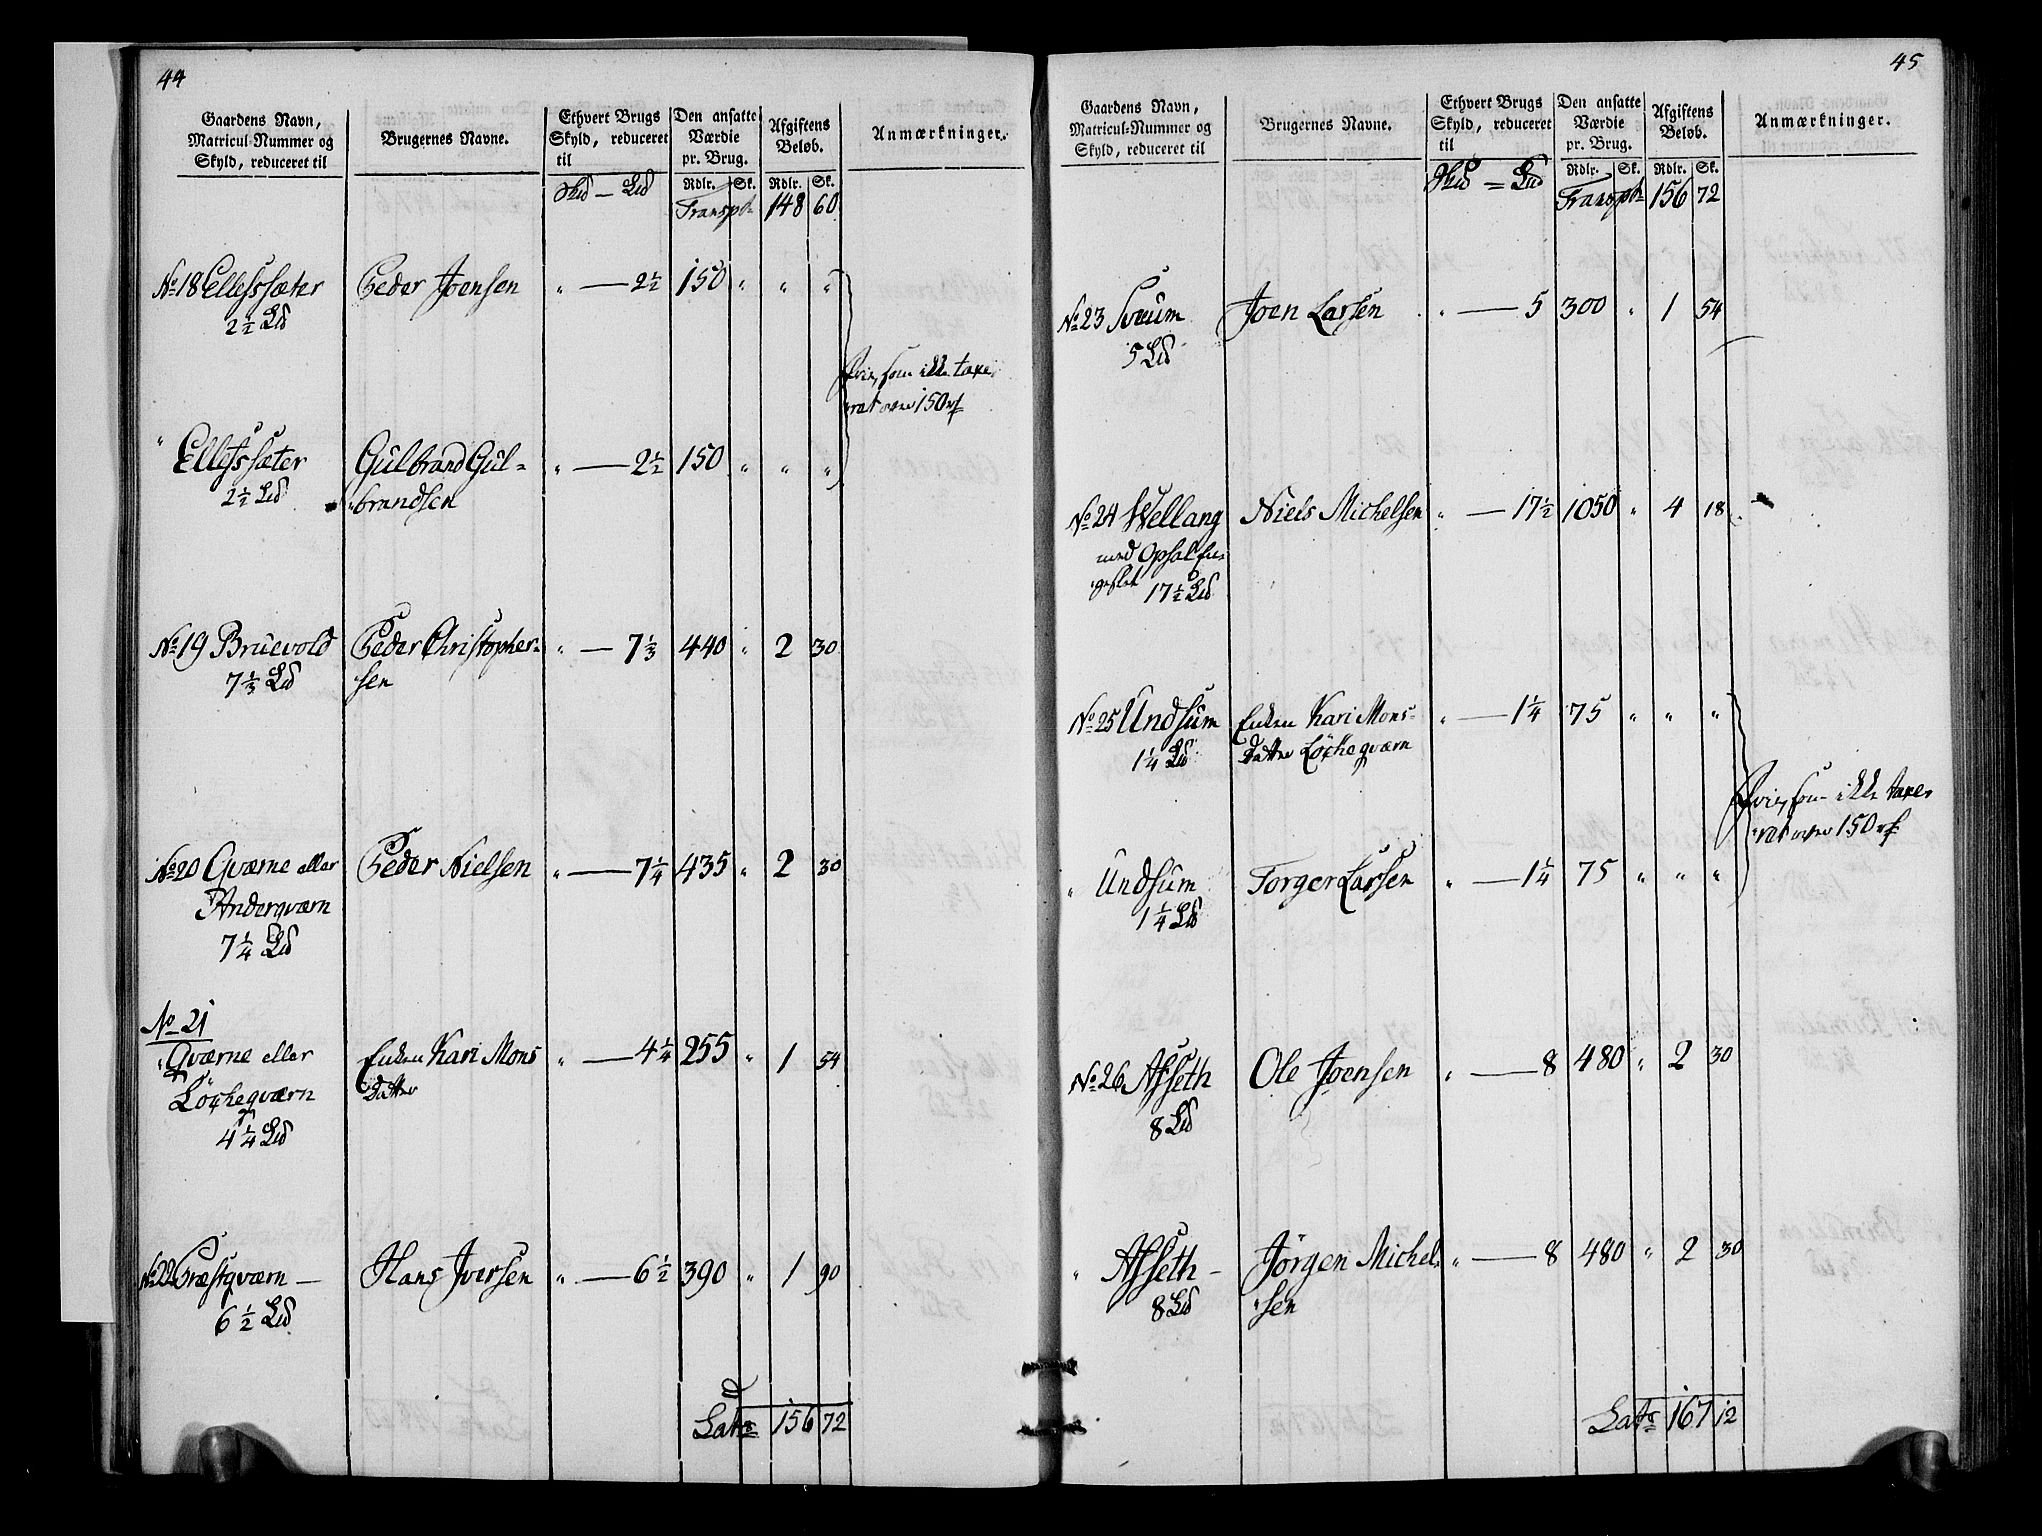 44
Gaardens Navn,
Matricul-Nummer og
Skyld, reduceret til
Brugernes Navne.
Ethvert Brugs
Skyld, reduceret
til
Den ansatte
Værdie
pr. Brug.
Afgiftens
Beløb.
Anmærkninger.
Rdlr. Sk. Rdlr. Sk.
Hud — Ld Transpt 148 60
No 18 Ellefssæter Peder Joensen " — 2½ 150 " " "
2½ Ld
frie, som ikke taxe-
ret over 150 rd
" Ellefssæter Gulbrand Gul- " — 2½ 150 " " "
2½ Ld brandsen
No 19 Bruevold Peder Christopher- " — 7⅓ 440 " 2 30
7⅓ Ld sen
No 20 Qværne eller Peder Nielsen " — 7¼ 435 " 2 30
Anderqværn
7¼ Ld
No 21
Qværne eller Enken Kari Mons " — 4¼ 255 " 1 54
Löckeqværn Datter
4¼ Ld
No 22 Præstqværn — Hans Iversen " — 6½ 390 " 1 90
6½ Ld
Lats 156 72
45
Gaardens Navn,
Matricul-Nummer og
Skyld, reduceret til
Brugernes Navne.
Ethvert Brugs
Skyld, reduceret
til
Den ansatte
Værdie
pr. Brug.
Afgiftens
Beløb.
Anmærkninger.
Rdlr. Sk. Rdlr. Sk.
Hud = Ld Transpt 156 72
No 23 Sveum Joen Larsen " — 5 300 " 1 54
5 Ld
No 24 Wellang Niels Michelsen " — 17½ 1050 " 4 18
med Opsal En-
geslet
17½ Ld
No 25 Undsum Enken Kari Mons- " — 1¼ 75 " " "
1¼ Ld Datter Löckeqværn
frie, som ikke taxe-
ret over 150 rd
" Undsum Torger Larsen " — 1¼ 75 " " "
1¼ Ld
No 26 Afseth Ole Joensen " — 8 480 " 2 30
8 Ld
" Afseth — Jörgen Michel- " — 8 480 " 2 30
8 Ld sen
Lats 167 12